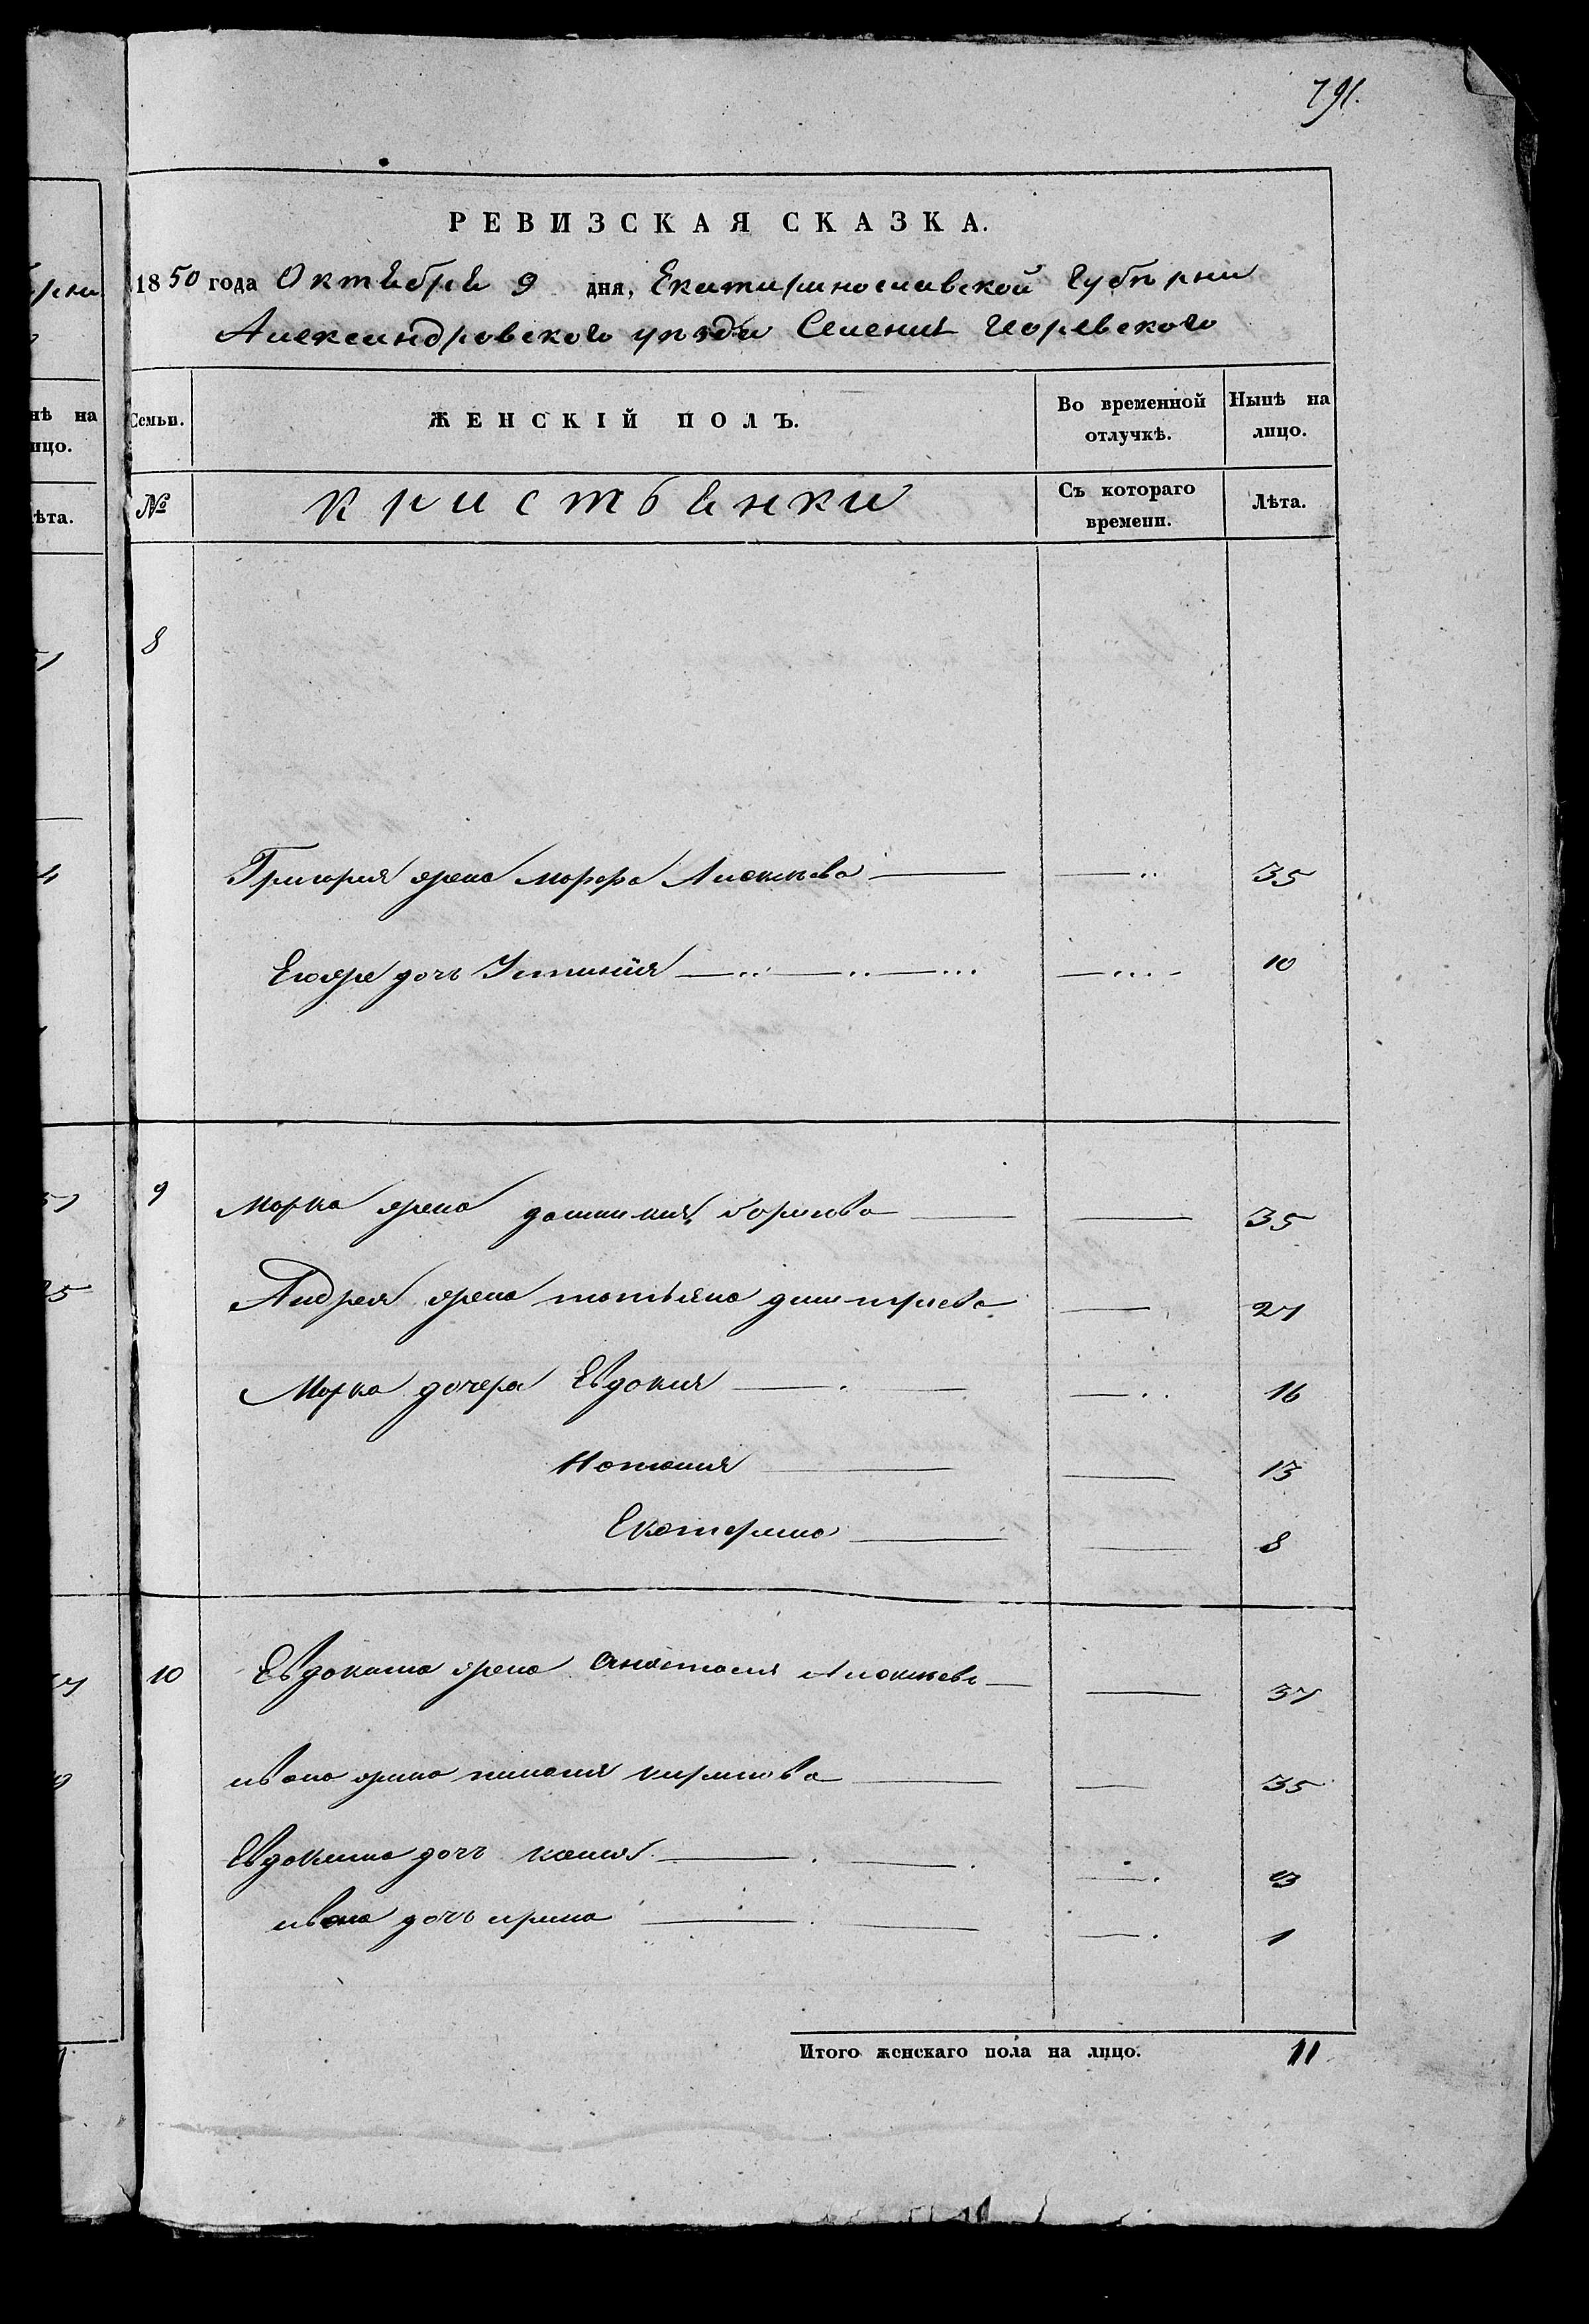 791.
РЕВИЗСКАЯ СКАЗКА.
1850 года Октября 9 дня, Екатиринославской Губѣрнии
Александровского уѣзда Селения Игоревского
Семьи. ЖЕНСКІЙ ПОЛЪ. Во временной отлучкѣ. Нынѣ на лицо.
№ кристьянки Съ котораго времени. Лѣта.
8
Григория жена Марфа Алексѣева 35
Егоже дочь Устиния 10
9 Марка жена Борисова 35
Андрея жена татьяна дмитриева 27
Марка дочера Евдокия 16
Наталия 13
Екатерина 8
10 Евдокима жена Анастасия Алексѣева 37
ивана жена кирилова 35
Евдокима дочь 13
ивана дочь ирина 1
Итого женскаго пола на лицо. 11